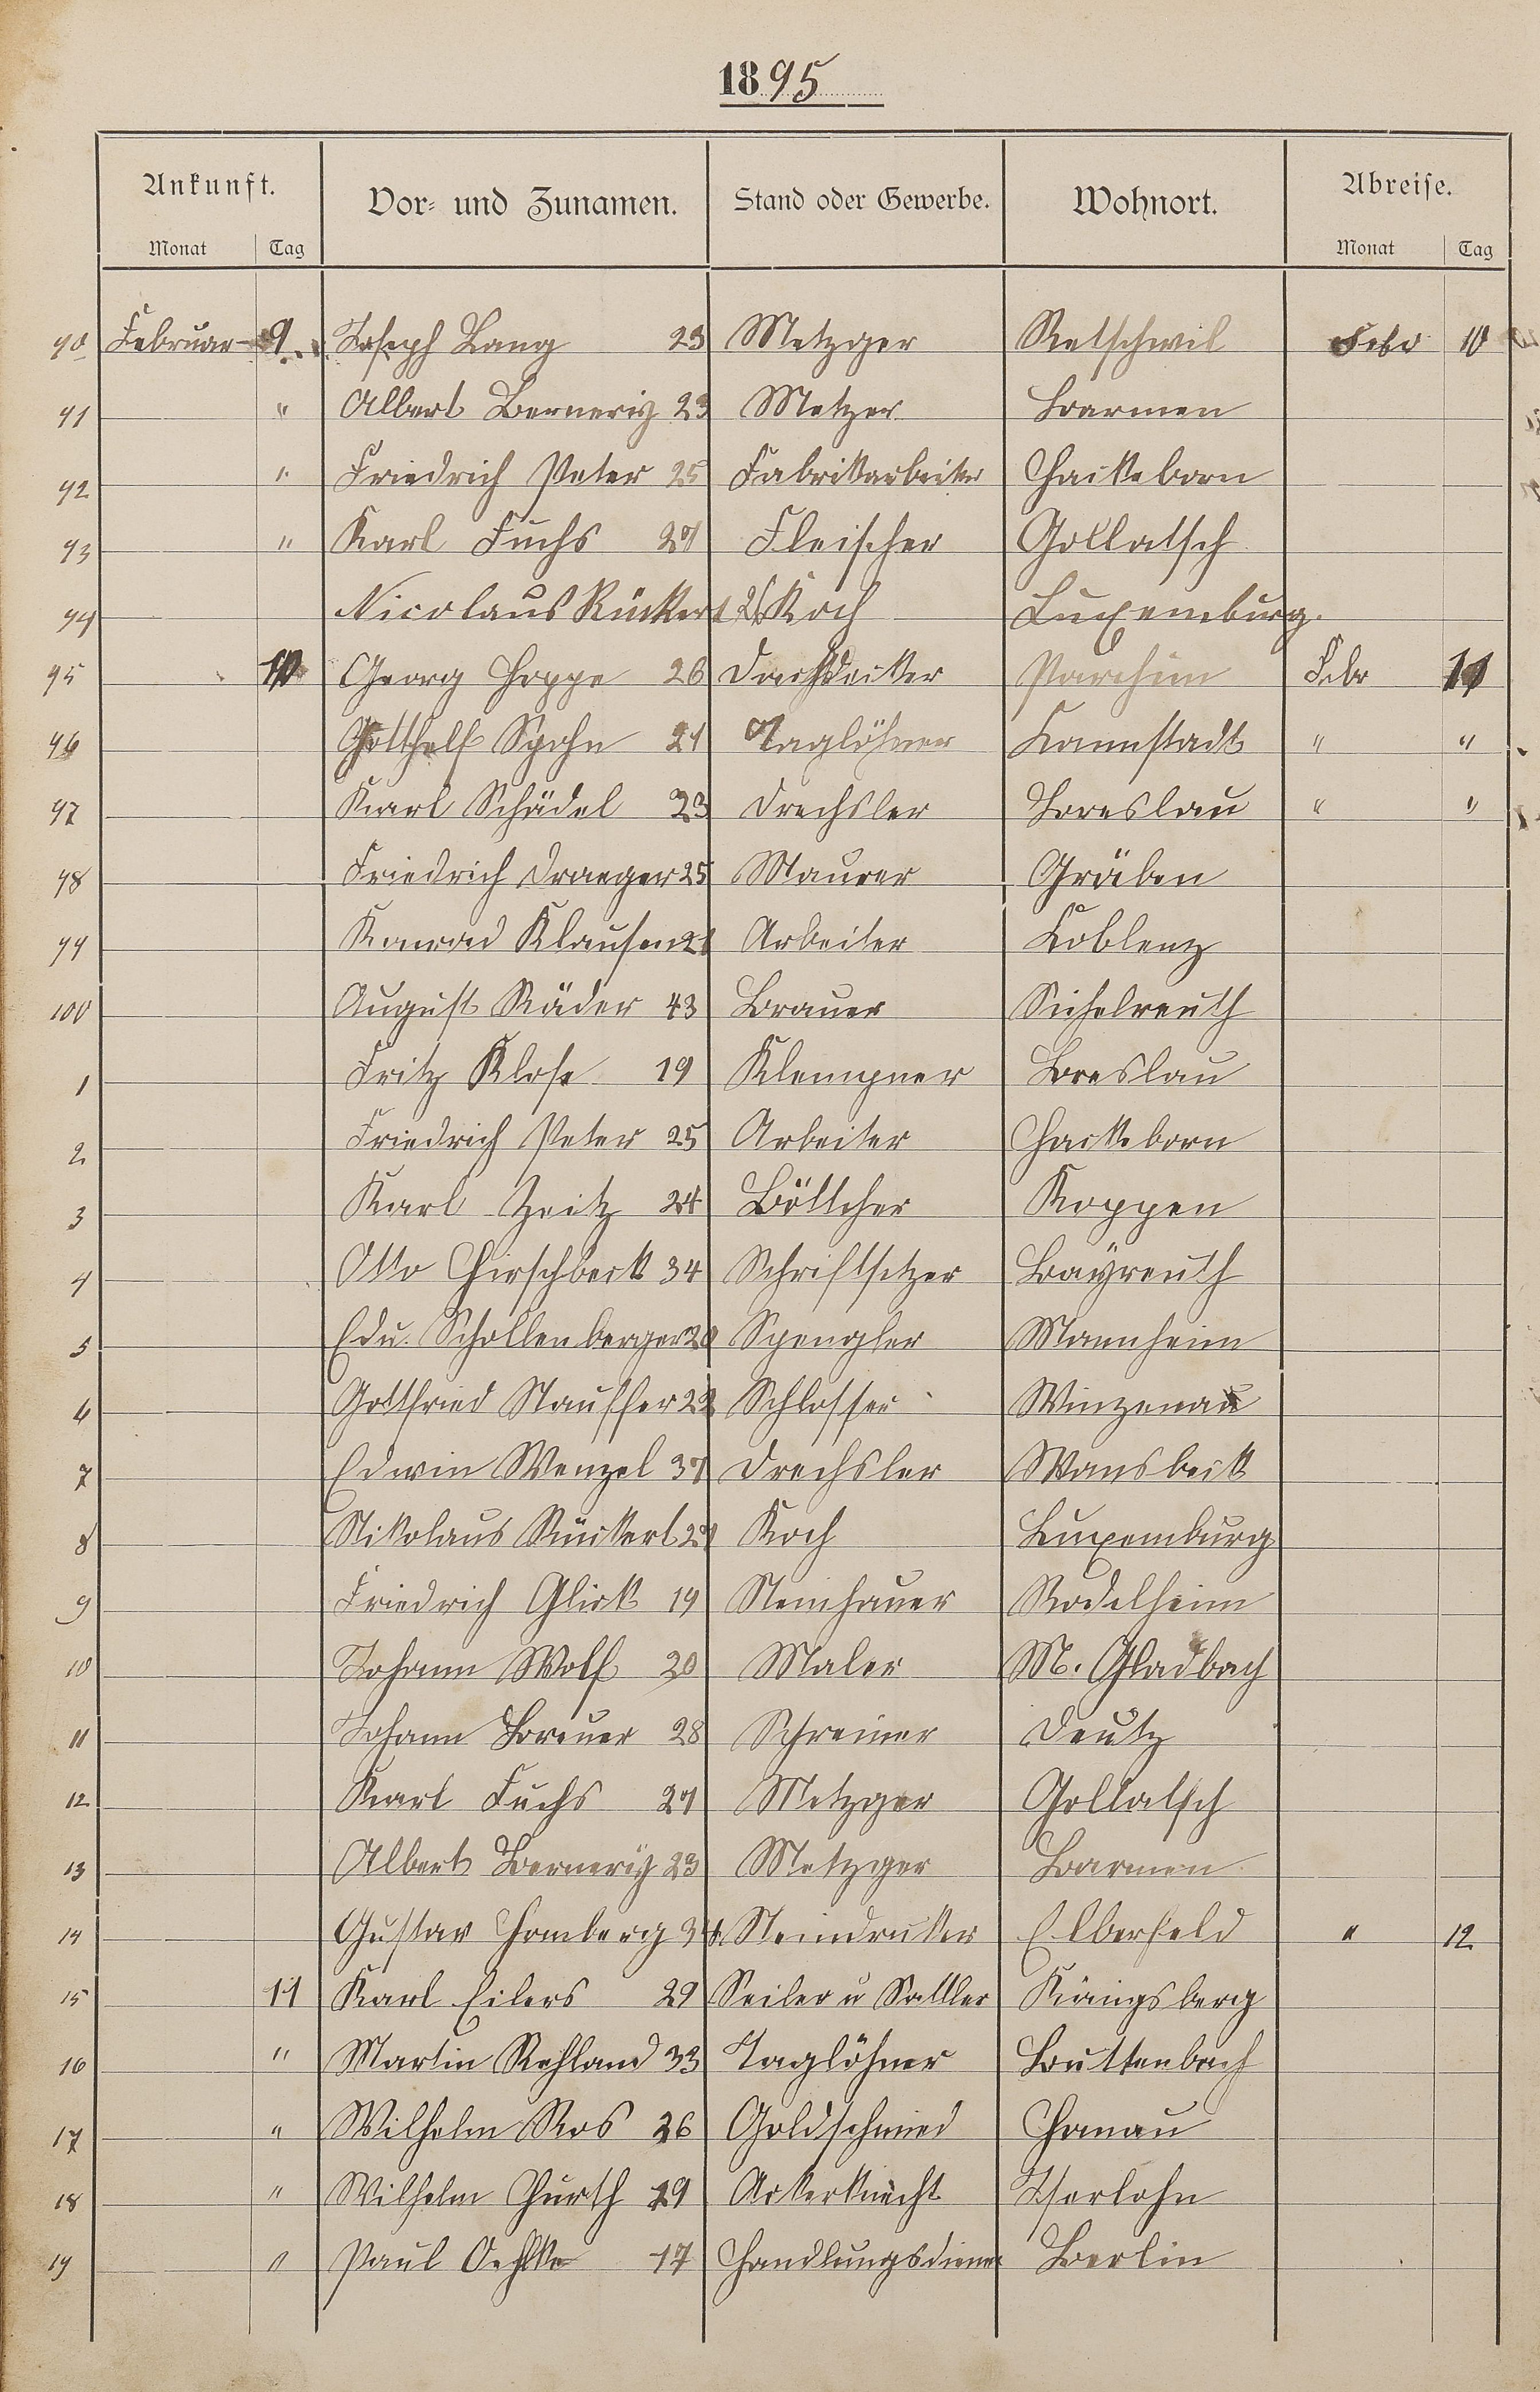 1895
Ankunft. Vor- und Zunamen. Stand oder Gewerbe. Wohnort. Abreise.
Monat Tag Monat Tag
90 Februar 9. Joseph Lang 23 Metzger Retschwil Febr 10
91 " Albert Berneriz 23 Metzer Barmen
92 " Friedrich Peter 25 Fabrikarbeiter Hackeborn
93 " Karl Fuchs 27 Fleischer Gollatsch
94 Nicolaus Rückert Koch Luxemburg.
95 10 Georg Hoppe 26 Dachdecker Parchim Febr 11
96 Gotthelf Spohn 21 Taglöhner Kannstadt " "
97 Karl Schädel 23 Drechsler Breslau " "
98 Friedrich Draeger 25 Maurer Gräben
99 Konrad Klausen 21 Arbeiter Koblenz
100 August Räder 43 Brauer Sichelreuth
1 Fritz Klose 19 Klempner Breslau
2 Friedrich Peter 25 Arbeiter Hackeborn
3 Karl Zeitz 24 Böttcher Koppen
4 Otto Hirschbeck 34 Schriftsetzer Bayreuth
5 Edu. Schollenberger 20 Spengler Mannheim
6 Gottfried Stauffer 22 Schlosser Winzenau
7 Edwin Wenzel 37 Drechsler Wansbeck
8 Nikolaus Rückert 27 Koch Luxemburg
9 Friedrich Glick 19 Steinhauer Rodelheim
10 Johann Wolf 20 Maler M. Gladbach
11 Johann Breuer 28 Schreiner Deutz
12 Karl Fuchs 27 Metzger Gollatsch
13 Albert Berneriz 23 Metzger Barmen
14 Gustav Homberg 34 Steindrucker Elberfeld " 12
15 11 Karl Eilers 29 Seiler u Sattler Königsberg
16 " Martin Rehland 33 Taglöhner Buttenbach
17 " Wilhelm Ros 26 Goldschmied Hanau
18 " Wilhelm Hurth 29 Ackerknecht Iserlohn
19 " Paul Oehlke 17 Handlungsdiener Berlin